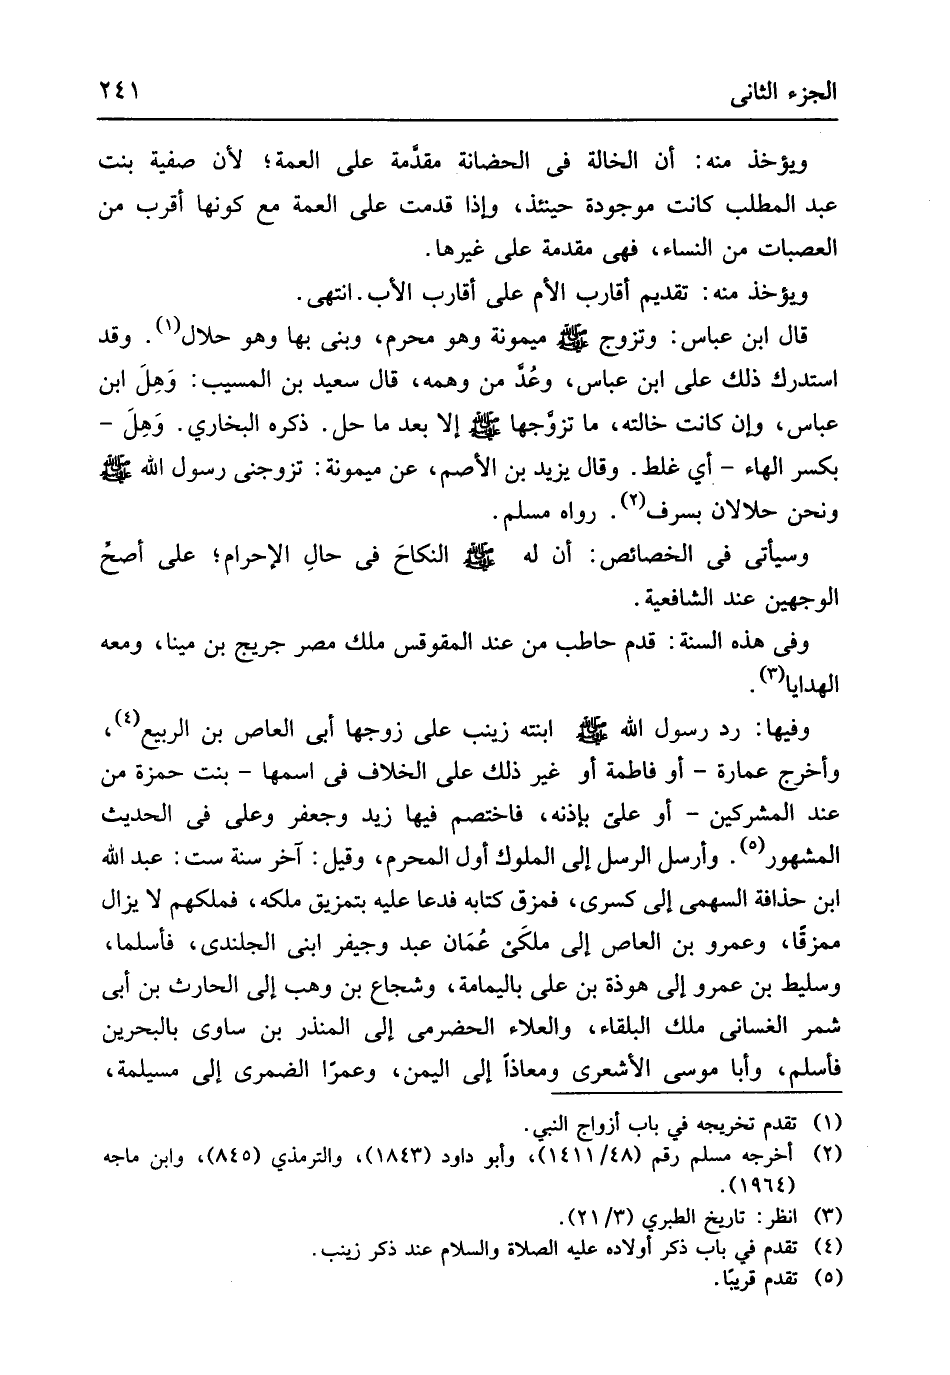 الجزء الثانى ٢٤١
ويؤخذ منه: أن الخالة فى الحضانة مقدَّمة على العمة؛ لأن صفية بنت
عبد المطلب كانت موجودة حينئذ، وإذا قدمت على العمة مع كونها أقرب من
العصبات من النساء، فهى مقدمة على غيرها.
ويؤخذ منه: تقديم أقارب الأم على أقارب الأب. انتهى.
قال ابن عباس: وتزوج ﷺ ميمونة وهو محرم، وبنى بها وهو حلال(١). وقد
استدرك ذلك على ابن عباس، وعُدَّ من وهمه، قال سعيد بن المسيب: وَهِلَ ابن
عباس، وإن كانت خالته، ما تزوَّجها ﷺ إلا بعد ما حل. ذكره البخاري. وَهِلَ -
بكسر الهاء - أي غلط. وقال يزيد بن الأصم، عن ميمونة: تزوجنى رسول الله ﷺ
ونحن حلالان بسرف(٢). رواه مسلم.
وسيأتى فى الخصائص: أن له ﷺ النكاحَ فى حالِ الإحرام؛ على أصحُ
الوجهين عند الشافعية.
وفى هذه السنة: قدم حاطب من عند المقوقس ملك مصر جريج بن مينا، ومعه
الهدايا(٣).
وفيها: رد رسول الله ﷺ ابنته زينب على زوجها أبى العاص بن الربيع(٤)،
وأخرج عمارة - أو فاطمة أو غير ذلك على الخلاف فى اسمها - بنت حمزة من
عند المشركين - أو علىّ بإذنه، فاختصم فيها زيد وجعفر وعلى فى الحديث
المشهور(٥). وأرسل الرسل إلى الملوك أول المحرم، وقيل: آخر سنة ست: عبد الله
ابن حذافة السهمى إلى كسرى، فمزق كتابه فدعا عليه بتمزيق ملكه، فملكهم لا يزال
ممزقًا، وعمرو بن العاص إلى ملكَىْ عُمَان عبد وجيفر ابنى الجلندى، فأسلما،
وسليط بن عمرو إلى هوذة بن على باليمامة، وشجاع بن وهب إلى الحارث بن أبى
شمر الغسانى ملك البلقاء، والعلاء الحضرمى إلى المنذر بن ساوى بالبحرين
فأسلم، وأبا موسى الأشعرى ومعاذاً إلى اليمن، وعمرًا الضمرى إلى مسيلمة،
(١) تقدم تخريجه في باب أزواج النبي.
(٢) أخرجه مسلم رقم (١٤١١/٤٨)، وأبو داود (١٨٤٣)، والترمذي (٨٤٥)، وابن ماجه
(١٩٦٤).
(٣) انظر: تاريخ الطبري (٢١/٣).
(٤) تقدم في باب ذكر أولاده عليه الصلاة والسلام عند ذكر زينب.
(٥) تقدم قريبًا.